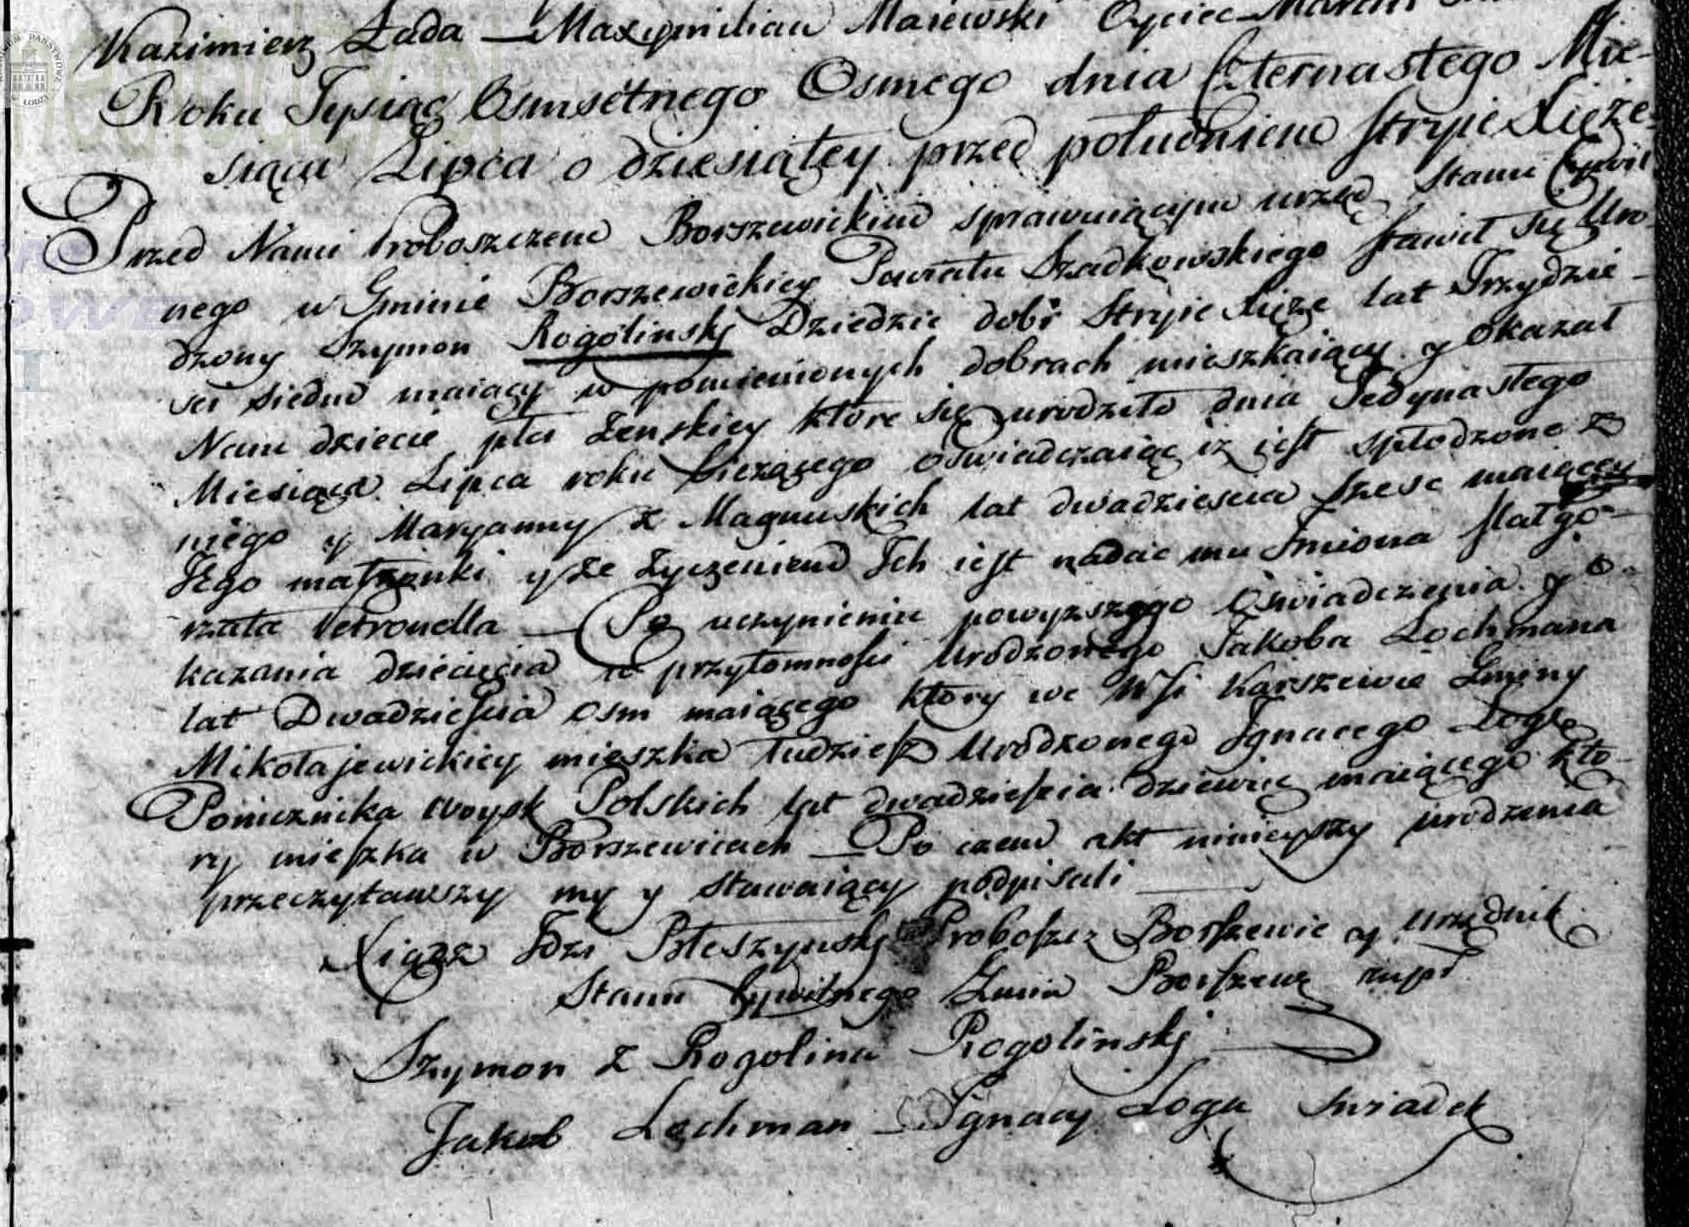 Kazimierz Łada — Maxymilian Maiewski Oyciec Marcin
Roku Tysiąc Osmsetnego Osmego dnia Czternastego Mie-
siąca Lipca o dziesiątey przed południem Stryie Xięże
Przed Nami Proboszczem Borszewickim sprawuiącym urząd Stanu Cywil
nego w Gminie Borszewickiey Powiatu Szadkowskiego stawił się Uro-
dzony Szymon Rogolinsky Dziedzic dobr Stryie Xięże lat Trzydzie-
sci siedm maiący w pomienionych dobrach mieszkaiący y okazał
Nam dziecie płci żenskiey ktore się urodziło dnia Jedynastego
Miesiąca Lipca roku bieżącego oswiadczaiąc iż iest spłodzone z
niego y Maryanny z Magnuskich lat dwadziescia szesc maiącey
Jego małżonki y że życzeniem Jch iest nadac mu Jmiona Małgo-
rzata Petronella — Po uczynieniu powyższego oswiadczenia y o-
kazania dziecięcia w przytomnosci Urodzonego Jakoba Lochmana
lat Dwadziescia osm maiącego ktory we Wsi Karszewie Gminy
Mikołajewickiey mieszka tudziesz Urodzonego Jgnacego Logę
Porucznika woysk Polskich lat dwadziescia dziewięc maiącego kto-
ry mieszka w Borszewicach — Po czem akt ninieyszy urodzenia
przeczytawszy my y stawaiący podpisali
Xiądz Płeszynsky Proboszcz Borszewic y Urzędnik
Stanu Cywilnego Gmin Borszew mpr
Szymon z Rogolina Rogolinsky
Jakub Lochman — Jgnacy Loga swiadek